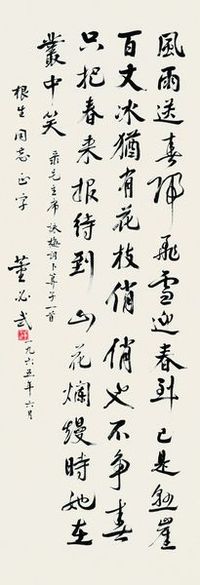 風雨送春歸飛雪迎春到已是懸崖
百丈冰猶有花枝俏俏也不争春
只把春来报待到山花爛熳時她在
叢中笑
录毛主席詠梅詞卜算子一首
根生同志正字
董必武 一九六五年六月